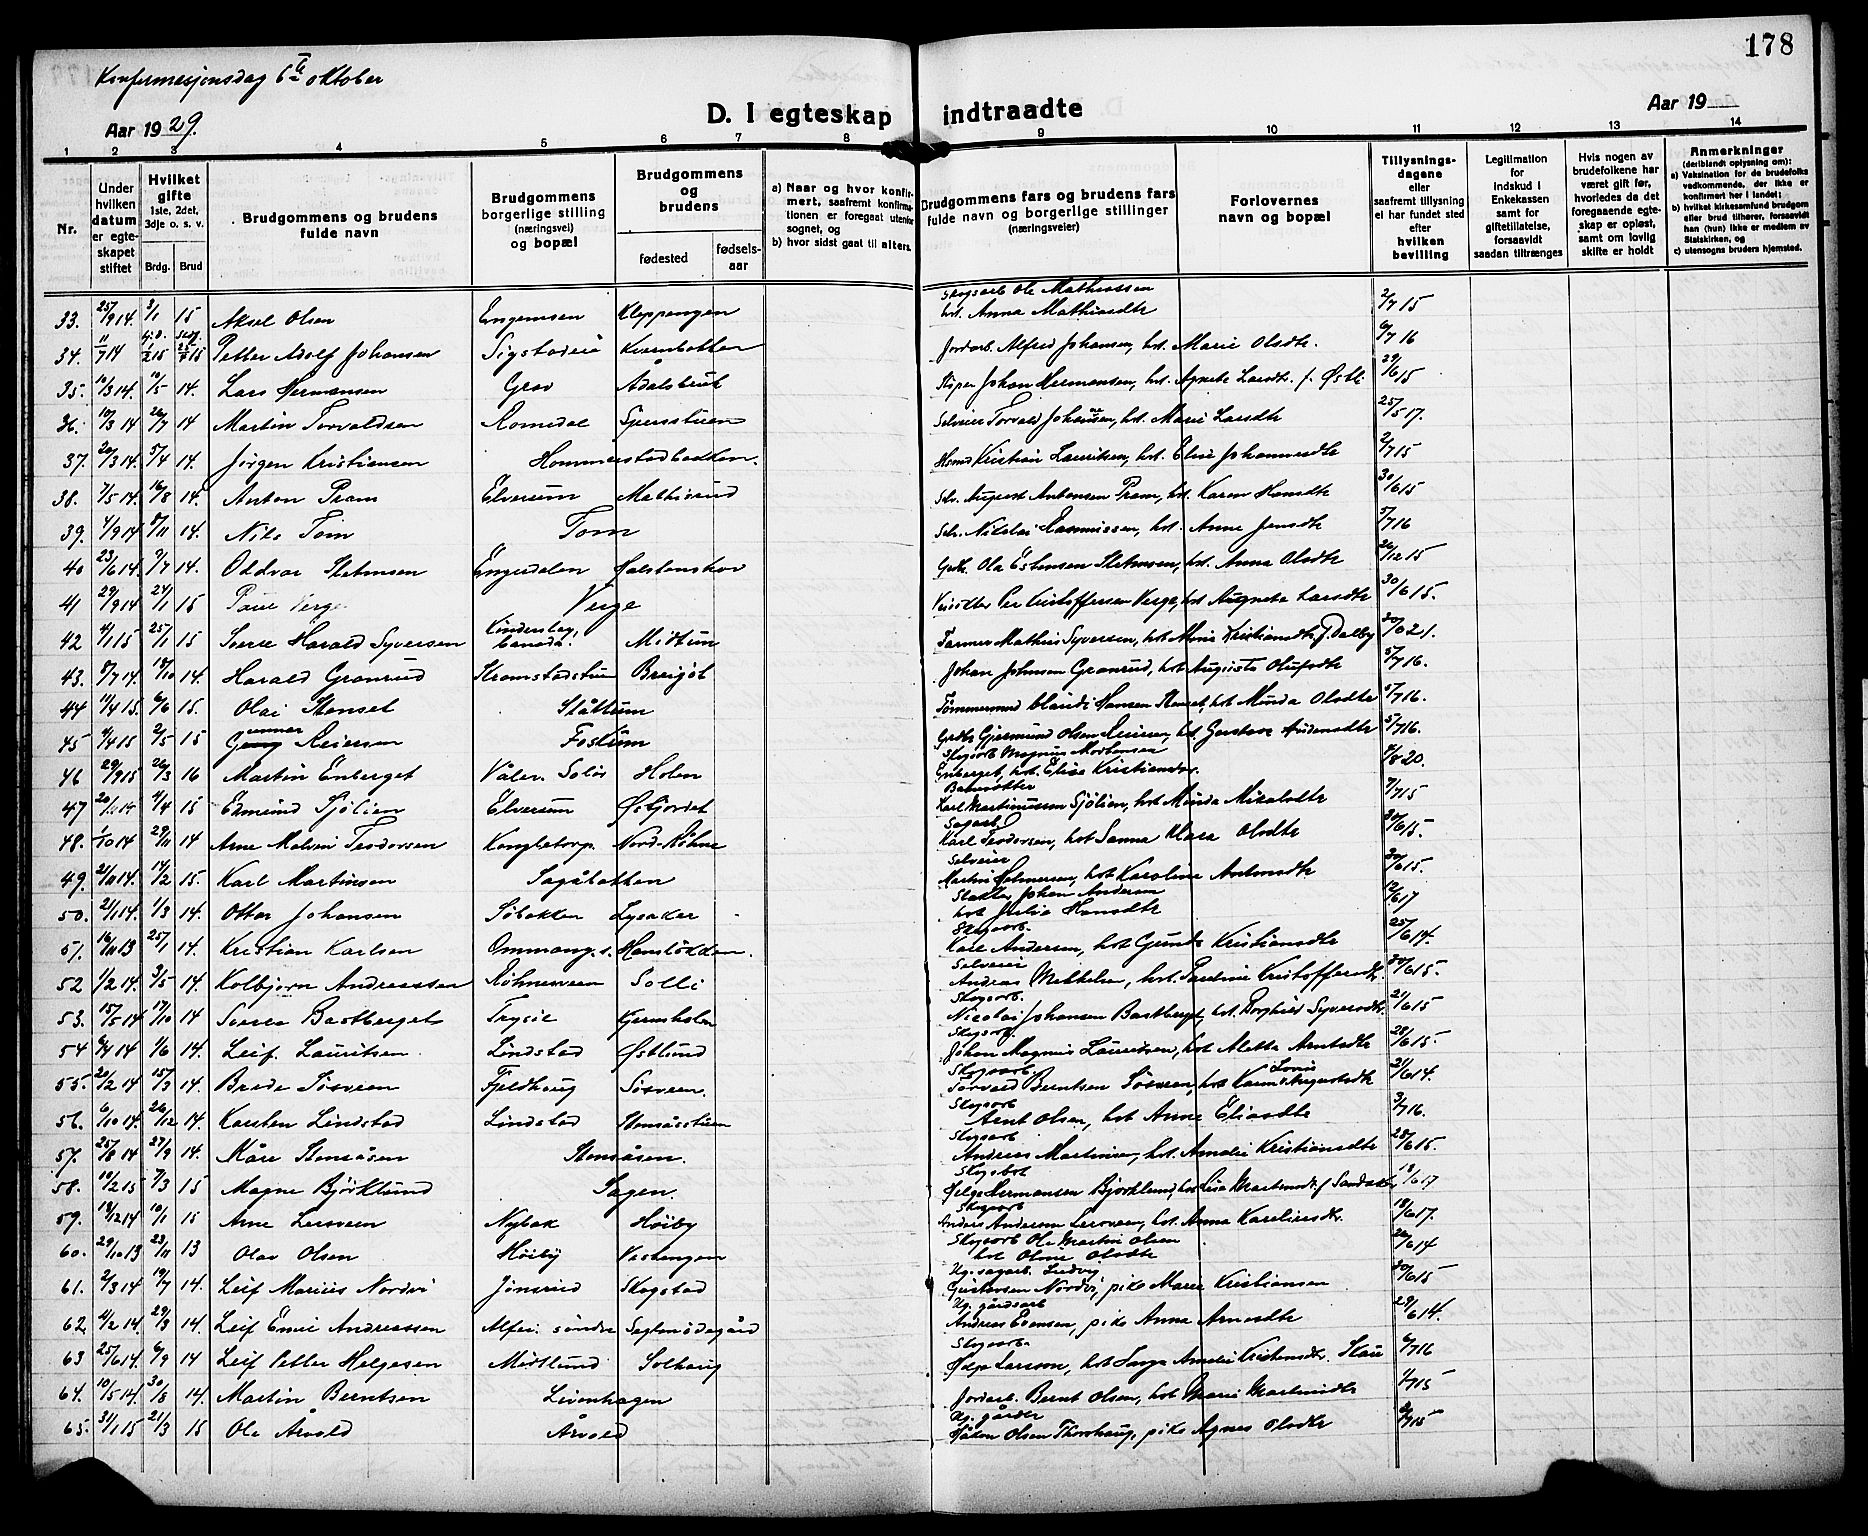 178
Konfermasjonsdag 6te oktober
Aar 1929.
D. I egteskap indtraadte
Aar 19
1 2 3 4 5 6 7 8 9 10 11 12 13 14
Nr.
Under hvilken datum er egteskapet stiftet
Hvilket gifte 1ste, 2det, 3dje o. s. v.
Brdg. Brud
Brudgommens og brudens fulde navn
Brudgommens borgerlige stilling (næringsvei) og bopæl
Brudgommens og brudens
fødested fødselsaar
a) Naar og hvor konfirmert, saafremt konfirmationen er foregaat utenfor sognet, og
b) hvor sidst gaat til alters.
Brudgommens fars og brudens fars fulde navn og borgerlige stillinger (næringsveier)
Forlovernes navn og bopæl
Tillysningsdagene eller saafremt tillysning ei har fundet sted efter hvilken bevilling
Legitimation for indskud i Enkekassen samt for giftetillatelse, forsaavidt saadan tiltrænges
Hvis nogen av brudefolkene har været gift før, hvorledes da det foregaaende egteskap er opløst, samt om lovlig skifte er holdt
Anmerkninger (deriblandt oplysning om): a) Vaksination for de brudefolks vedkommende, der ikke er konfirmert her i landet; b) hvilket kirkesamfund brudgom eller brud tilhører, forsaavidt han (hun) ikke er medlem av Statskirken, og c) utensogns bruders hjemsted.
33. 25/9 14. 3/1 15 Aksel Olsen Engemoen Kleppengen Skogsarb Ole Mathiassen hst. Anna Mathiasdtr 2/7 15
34. 11/7 14 Petter Adolf Johansen Sigstadeie Kvernbakken Jordarb. Alfred Johansen, hst. Marie Olsdtr. 6/7 16
35. 10/3 14. 10/5 14. Lars Hermansen Grav Ådalsbruk Johan Hermansen, hst. Agnete Larsdtr. f. Østli 29/6 15
36. 10/3 14 26/7 14 Martin Torvaldsen Romedal Sperstuen Selveier Torvald Johansen, hst. Marie Larsdtr 25/5 17.
37. 20/3 14. 5/4 14. Jørgen Kristiansen Hommerstadbakken. Kristian Lauritsen, hst. Elise Johannesdtr 2/7 15
38. 7/5 14. 16/8 14. Anton Pram Elverum Mathisrud Selv. August Antonsen Pram, hst. Karen Hansdtr 30/6 15
39. 4/9 14. 8/11 14. Nils Tom Tom Selv. Nikolai Rasmussen, hst. Anne Jensdtr 5/7 16
40 23/6 14. 9/7 14. Oddvar Stetmoen Engerdalen Holstenskov Gbr. Ola Estensen Stetmoen, hst. Anna Olsdtr 26/12 15
41 29/9 14 24/1 15 Paul Verge Verge Per Kristoffersen Verge, hst Augneta Larsdtr 30/6 15.
42 4/1 15 25/1 15 Sverre Harald Syversen Kindersley, Canada. Midtun Farmer Mathias Syversen, hst Marie Kristiansdtr f. Dalby
43. 8/7 14. 18/10 14. Harald Granrud Kromstadstuen Breigot Johan Johnsen Granrud, hst Augusta Olufsdtr 5/7 16.
44 11/4 15. 6/6 15. Olai Stenset Ståkkum Tømmermand Hansen Stenset, hst Minda Olsdtr 5/7 16.
45 4/4 15 2/5 15 Gunnar Reiersen Foskum Gbr Gjermund Olsen Reiersen, hst. Gustava Audensdtr 5/7 16.
46 29/9 15 26/3 16 Martin Enberget Våler. Solør Holen Skogsarb Magnus Mortensen Enberget, hst. Elise Kristiansdtr. 4/8 20.
47 4/4 15 Edmund Sjølien Elverum Østjordet Banevokter Karl Martinussen Sjølien, hst Minda Mikalsdtr 7/7 15
48. 1/10 14 29/11 14 Arne Malvin Teodorsen Kongletorp. Nord-Kåhne Sagarb. Karl Teodorsen, hst Sanna Klara Olsdtr 30/6 15.
49. 21/11 14. 14/2 15. Karl Martinsen Sagåbakken Selveier Martin Helmersen, hst Karoline Antonsdtr 30/6 15.
50. 21/1 14. 1/3 14. Ottar Johansen Søbakken Lysaker Slakter Johan Andersen hst Julia Hansdtr 12/6 17
51. 16/11 13 25/1 14. Kristian Karlsen Ommang.s. Hansløkken. Skogarb. Karl Andersen, hst Gunda Kristiansdtr 25/6 14.
52 1/2 14. 3/5 14. Kolbjørn Andreassen Røhnesveen Solli Selveier Andreas Mikkelsen, hst. Pauline Kristoffersdtr. 30/6 15.
53. 15/5 14 17/10 14 Sverre Bastberget Trysil Kjernholen Skogarb. Nicolai Johansen Bastberget, hst. Borghild Syversdtr. 21/6 15
54 6/4 14 1/6 14. Leif. Lauritsen. Lindstad Østlund Skogsarb. Johan Magnus Lauritsen, hst Aletta Arntsdtr 28/6 15.
55. 20/2 14 15/3 14. Brede Søsveen Fjeldhaug Søsveen. Skogsarb Torvald Berntsen Søsveen, hst Karen Lovise Augustsdtr 21/6 14.
56. 6/10 14. 26/12 14. Karsten Lindstad Lindstad Stensåsstuen Skogsarb Arnt Olsen, hst Anne Eliasdtr 3/7 16.
57. 25/8 14 27/9 14. Kåre Stensåsen Stensåsen. Skogsarb Andreas Martinsen, hst. Amalie Kristiansdtr 28/6 15.
58. 10/2 15 7/3 15 Magne Bjørklund Sagen. Helge Hermansen Bjørklund, hst Lisa Martinsdtr. f Sandaker 18/6 17
59. 18/12 14 10/1 15 Arne Leirveen Nybak Høiby Skogarb Anders Andersen Leirveen, hst. Anna Karelinsdtr. 18/6 17.
60. 29/10 13 23/11 13 Olav Olsen Høiby Vestengen Skogsarb Ole Martin Olsen hst Oline Olsdtr 26/6 14
61. 2/3 14 19/7 14. Leif Marius Nordvi Jønsrud Skogstad Ug. sagarb. Ludvig Gustavsen Nordvi, pike Marie Kristiansen 30/6 15
62. 4/2 14. 29/3 14. Leif Emil Andreassen Alfei. søndre Saglundegård Ug. gårdsarb Andreas Evensen, pike Anna Arnesdtr 29/6 14.
63 25/6 14. 6/9 14 Leif Petter Helgesen Midtlund Solhaug Skogsarb. Helge Larsson, hst Amalie Kristensdtr. Stau 6/7 16
64. 10/5 14. 30/8 14. Martin Berntsen Leirenhagen Jordarb. Bernt Olsen, hst Marie Martinsdtr 1/7 15
65. 31/1 15 21/3 15 Ole Årvold Årvold Ug. gårdbr Håkon Olsen Thorshaug, pike Agnes Olsdtr 2/7 15